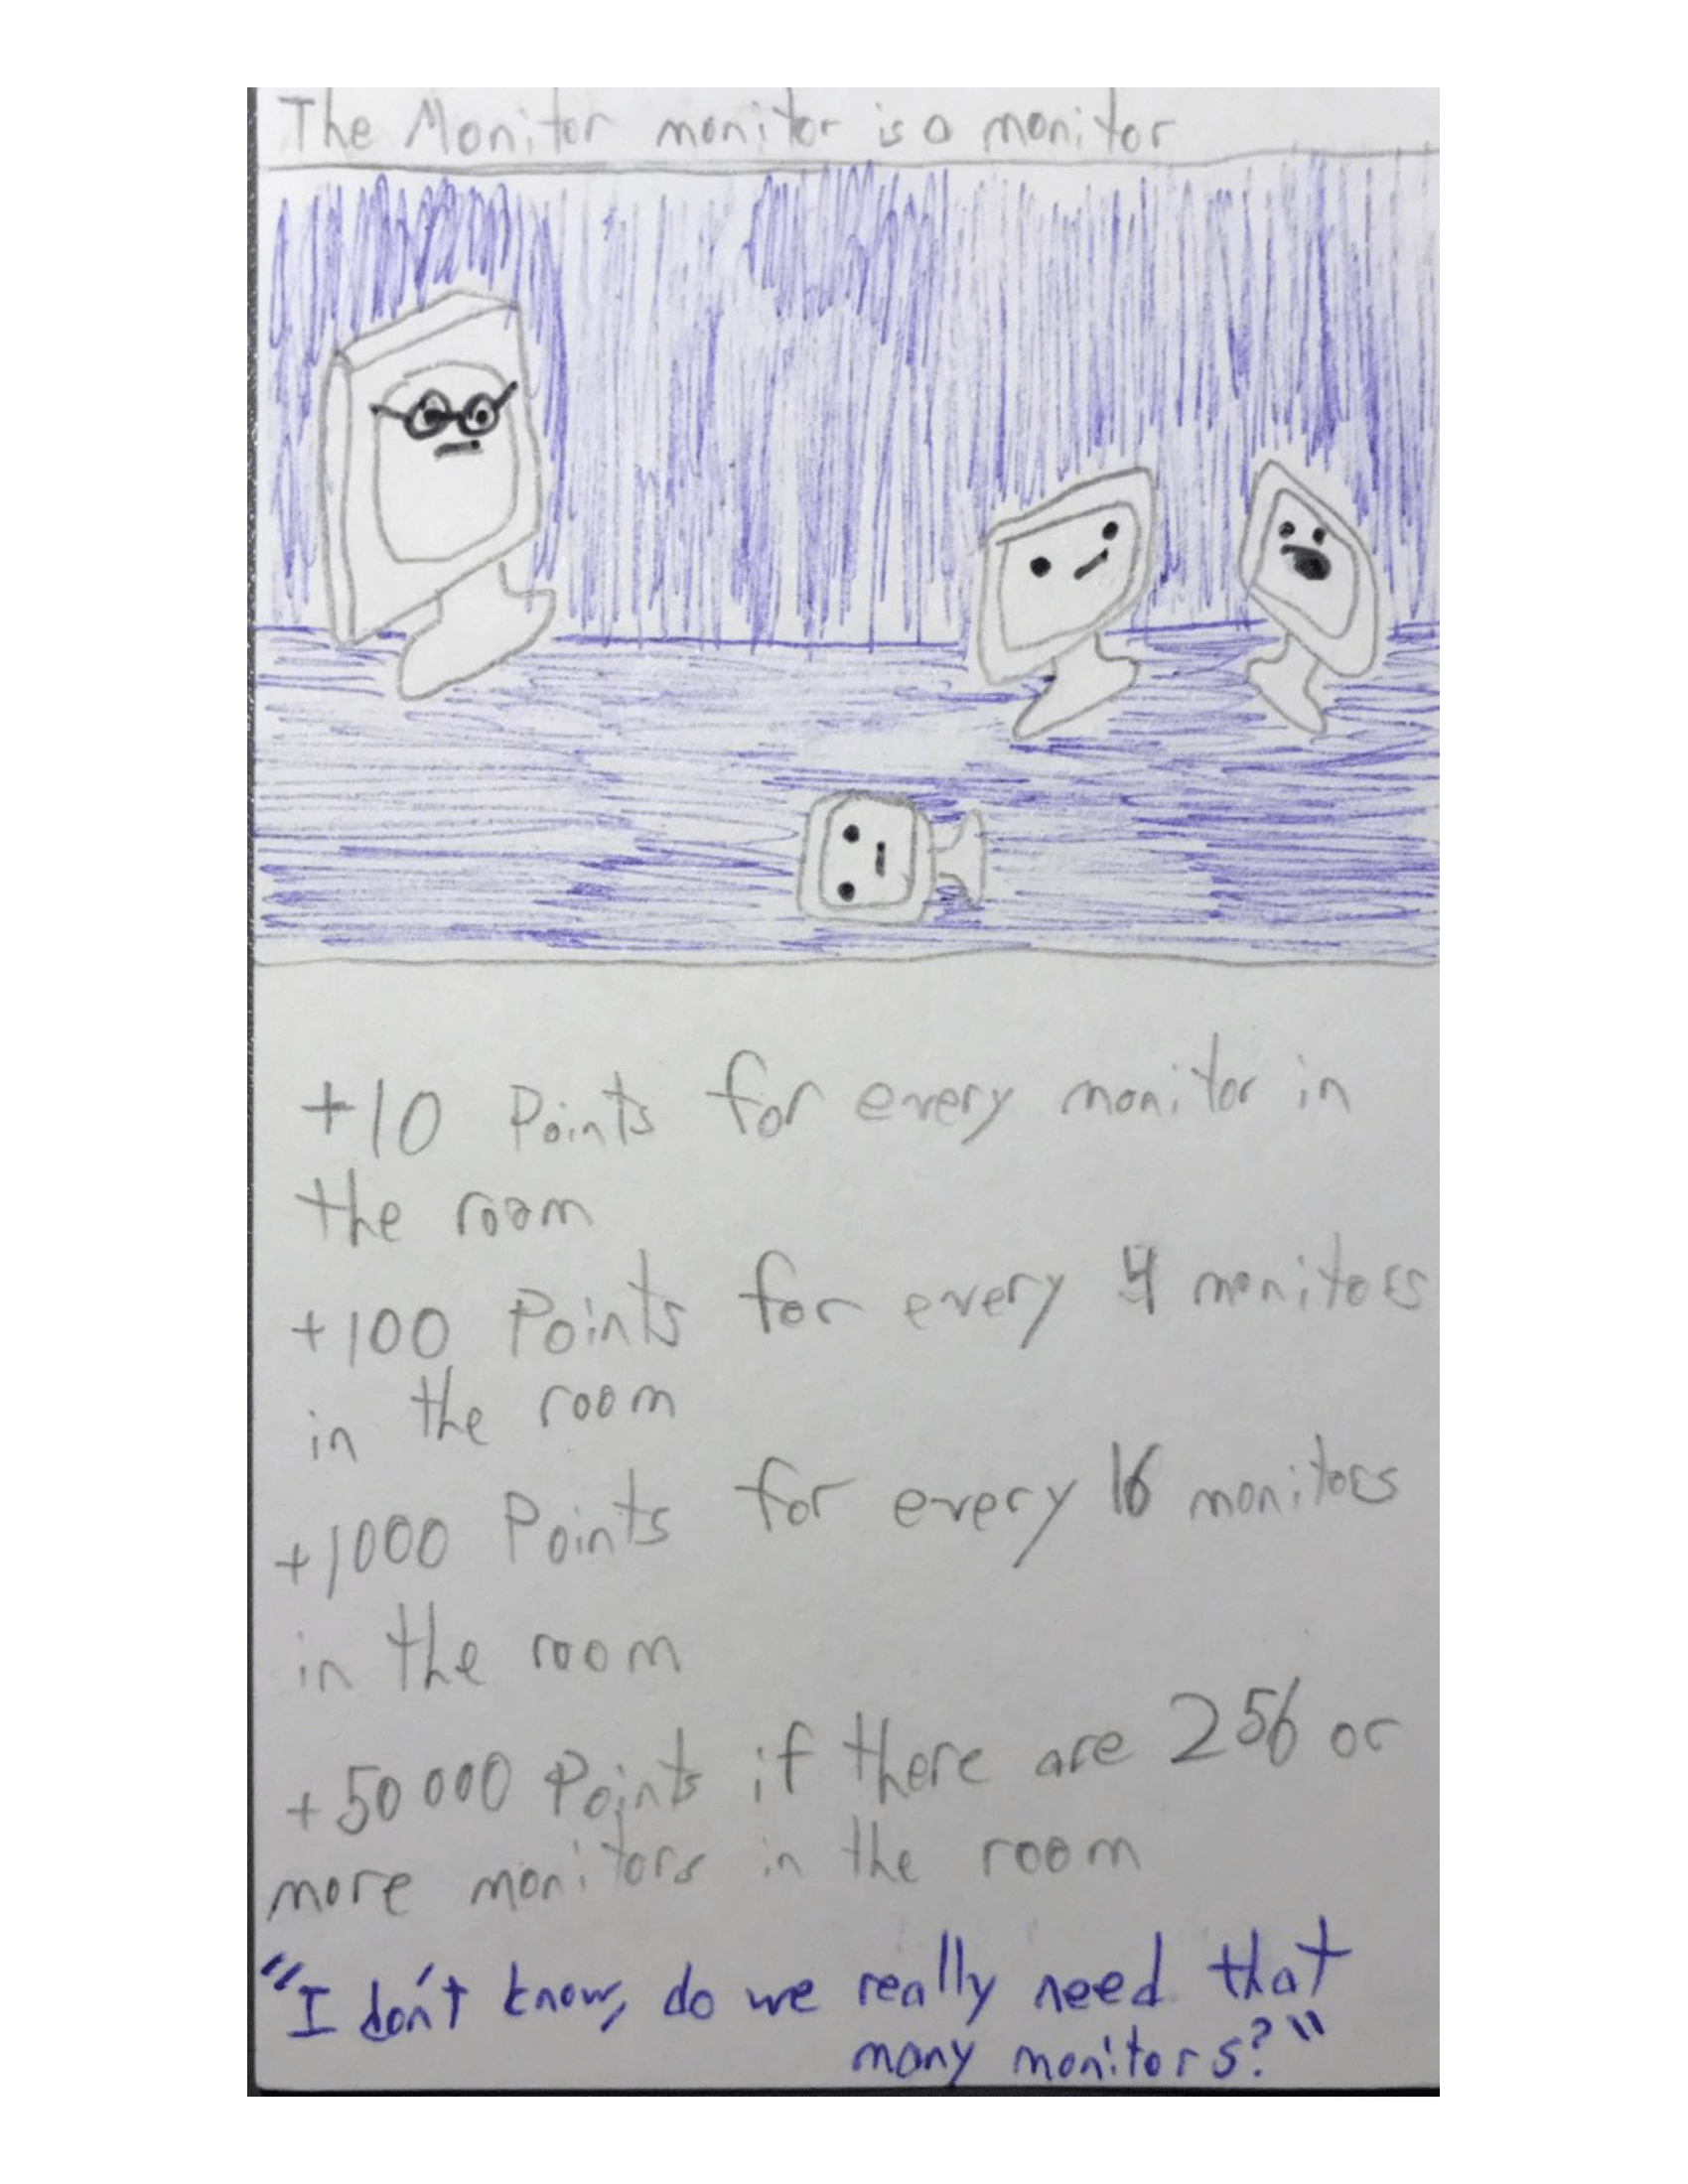 The Monitor monitor is a monitor
+10 Points for every monitor in
the room
+100 Points for every 4 monitors
in the room
+1000 Points for every 16 monitors
in the room
+50000 Points if there are 256 or
more monitors in the room
"I don't know, do we really need that
many monitors?"